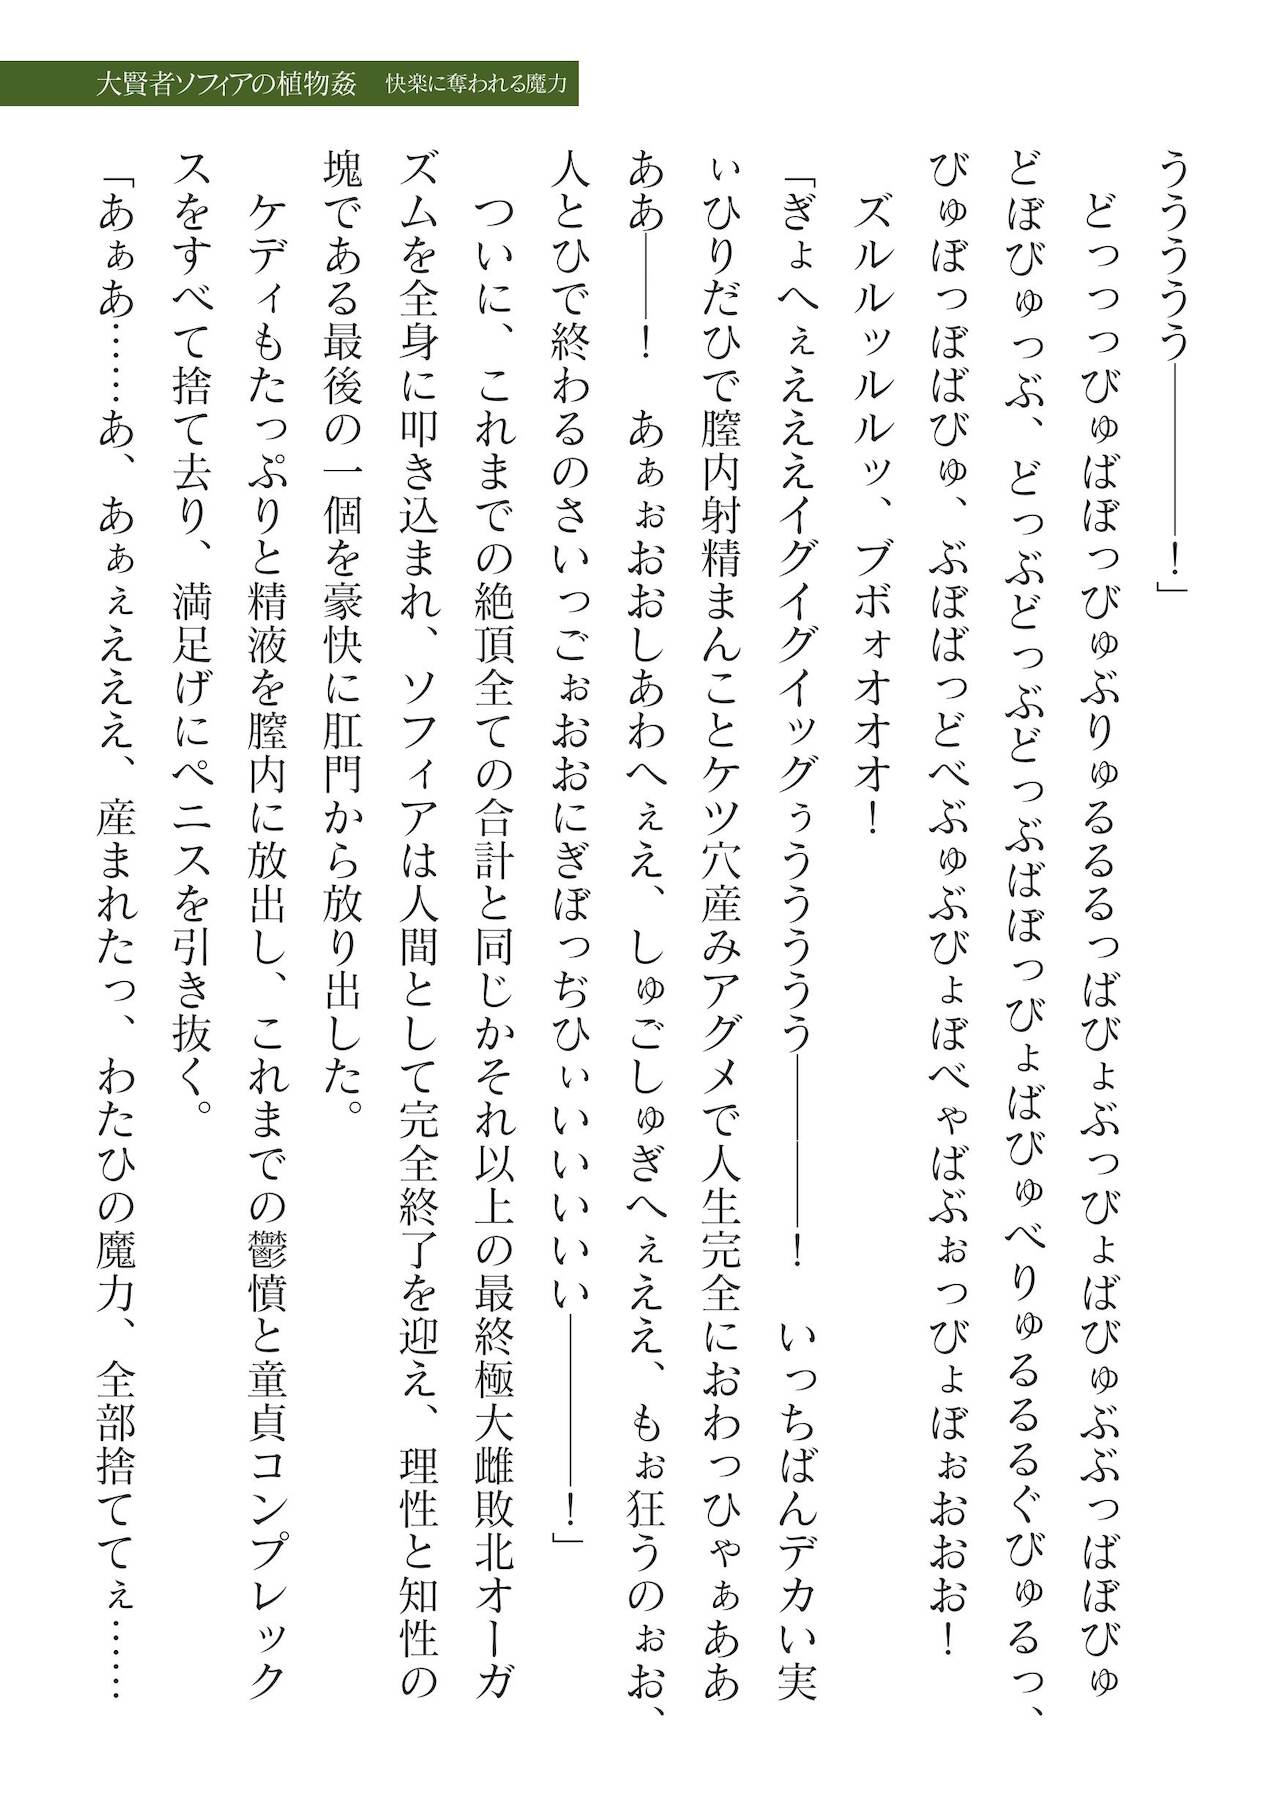 大賢者ソフィアの植物姦　快楽に奪われる魔力
ううううう――――！」
　どっっっびゅばぼっびゅぶりゅるるるっばびょぶっびょばびゅぶぶっばぼびゅ
どぼびゅっぶ、どっぶどっぶどっぶばぼっびょばびゅべりゅるるるぐびゅるっ、
びゅぼっぼばびゅ、ぶぼばっどべぶゅぶびょぼべゃばぶぉっびょぼぉおおお！
　ズルルッルルッ、ブボォオオオ！
「ぎょへぇえええイグイグイッグぅううううう――――！　いっちばんデカい実
ぃひりだひで膣内射精まんことケツ穴産みアグメで人生完全におわっひゃぁああ
ああ――！　あぁぉおおしあわへぇえ、しゅごしゅぎへぇええ、もぉ狂うのぉお、
人とひで終わるのさいっごぉおおにぎぼっぢひぃいいいいい――――！」
　ついに、これまでの絶頂全ての合計と同じかそれ以上の最終極大雌敗北オーガ
ズムを全身に叩き込まれ、ソフィアは人間として完全終了を迎え、理性と知性の
塊である最後の一個を豪快に肛門から放り出した。
　ケディもたっぷりと精液を膣内に放出し、これまでの鬱憤と童貞コンプレック
スをすべて捨て去り、満足げにペニスを引き抜く。
「あぁあ……あ、あぁぇえええ、産まれたっ、わたひの魔力、全部捨ててぇ……